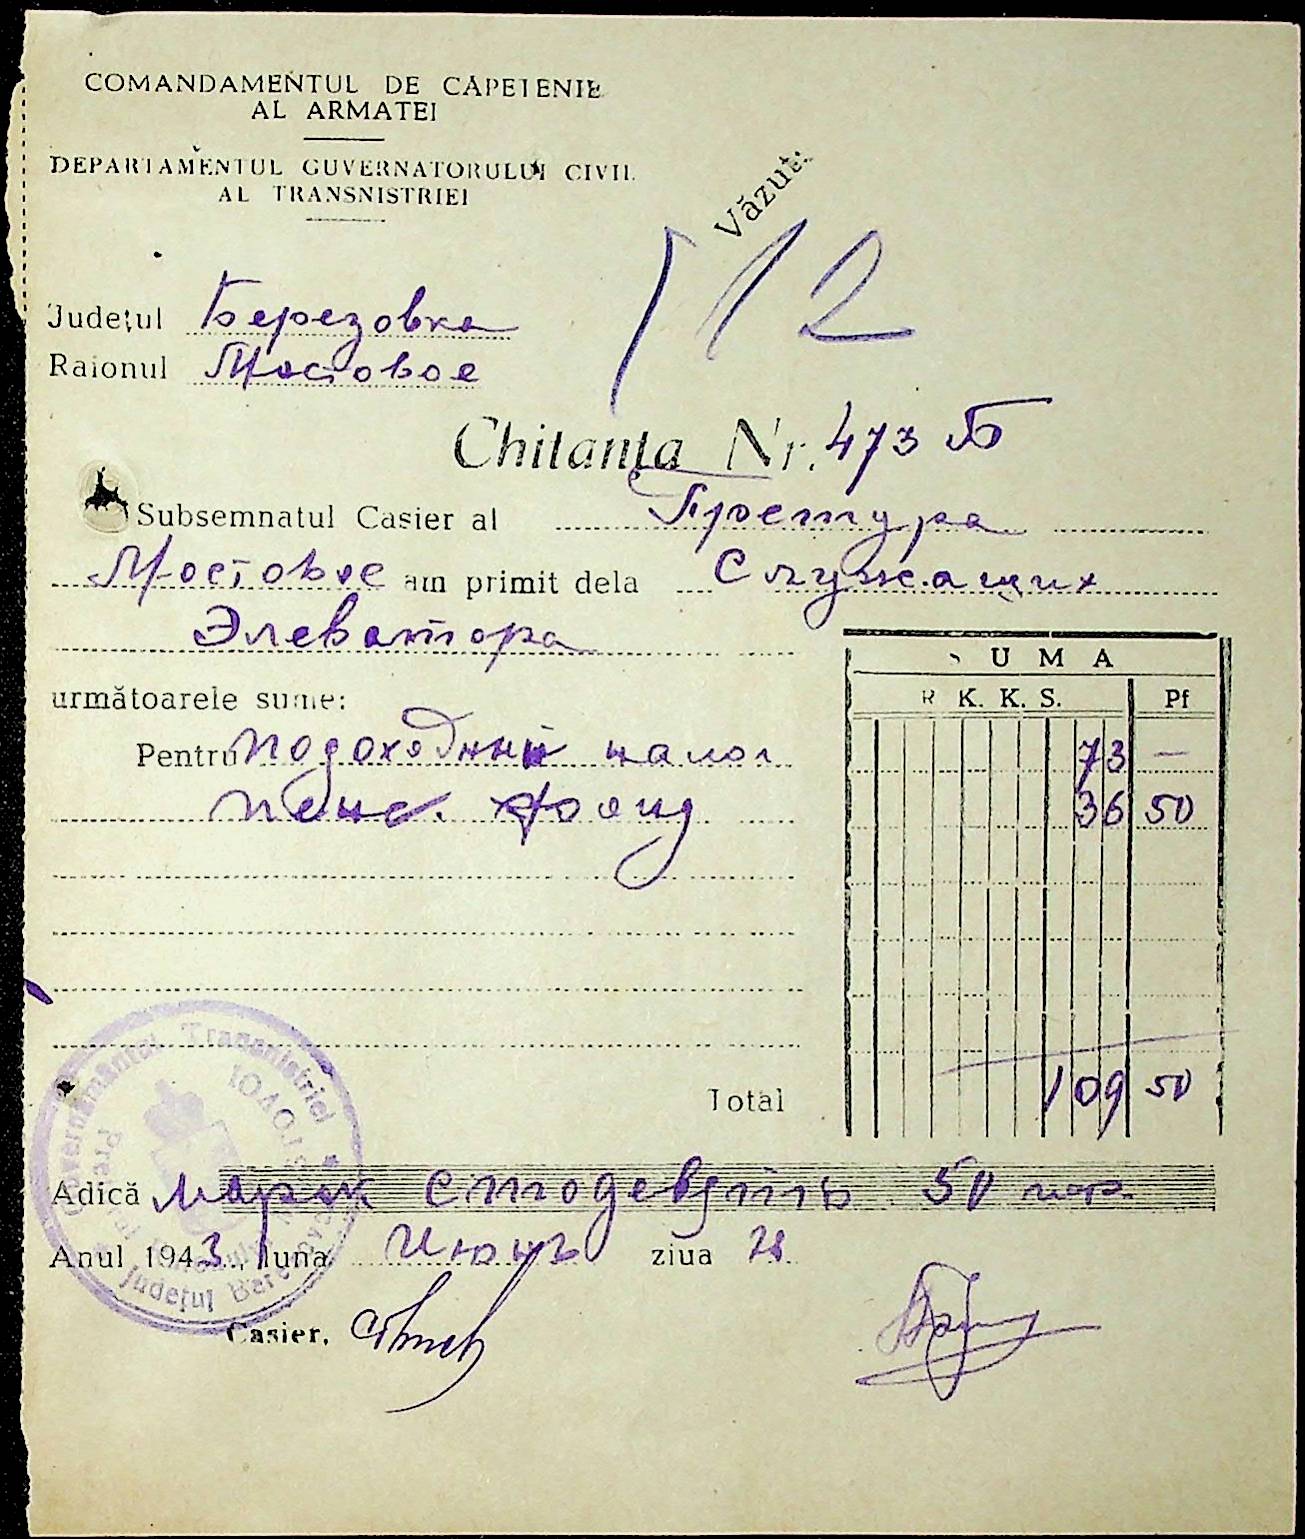 COMANDAMENTUL DE CAPETENIE
AL ARMATEI
DEPARTAMENTUL GUVERNATORULUI CIVIL
AL TRANSNISTRIEI
Văzut:
12
Județul Березовка
Raionul Мостовое
Chitanța Nr. 473 Б
Subsemnatul Casier al Претура
Мостовое am primit dela Служащих
Элеватора
SUMA
următoarele sume:
R. K. K. S. Pf
Pentru подоходный налог 73 —
пенс. фонд 36 50
Total 109 50
Adică Марок стодевять 50 пф.
Anul 1943, luna Июнь ziua 28
Casier,
Guvernământul Transnistriei
Județul